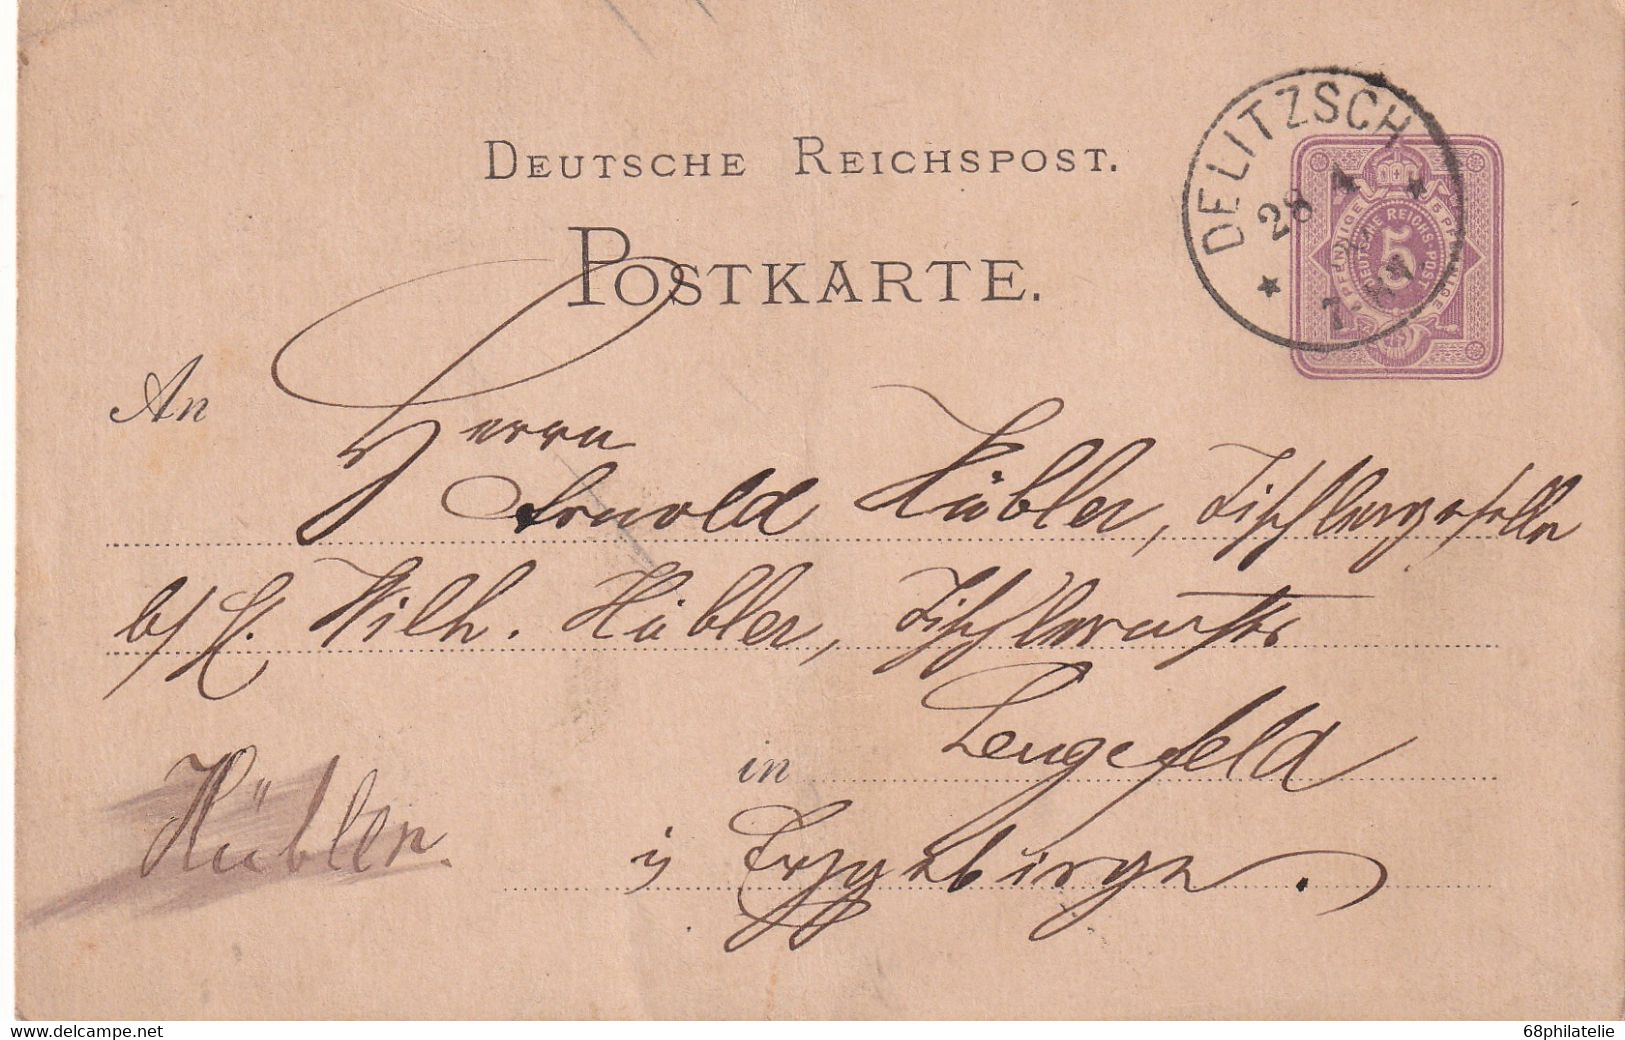 DEUTSCHE REICHSPOST.
POSTKARTE.
DELITZSCH
28 4
5 PFENNIGE
DEUTSCHE REICHS-POST
5
An
Herrn
Arnold Hübler, Tischlergeselle
b/ H. Wilh. Hübler, Tischlermstr
in Lengefeld
i/ Erzgebirge.
Hübler.
www.delcampe.net
68philatelie